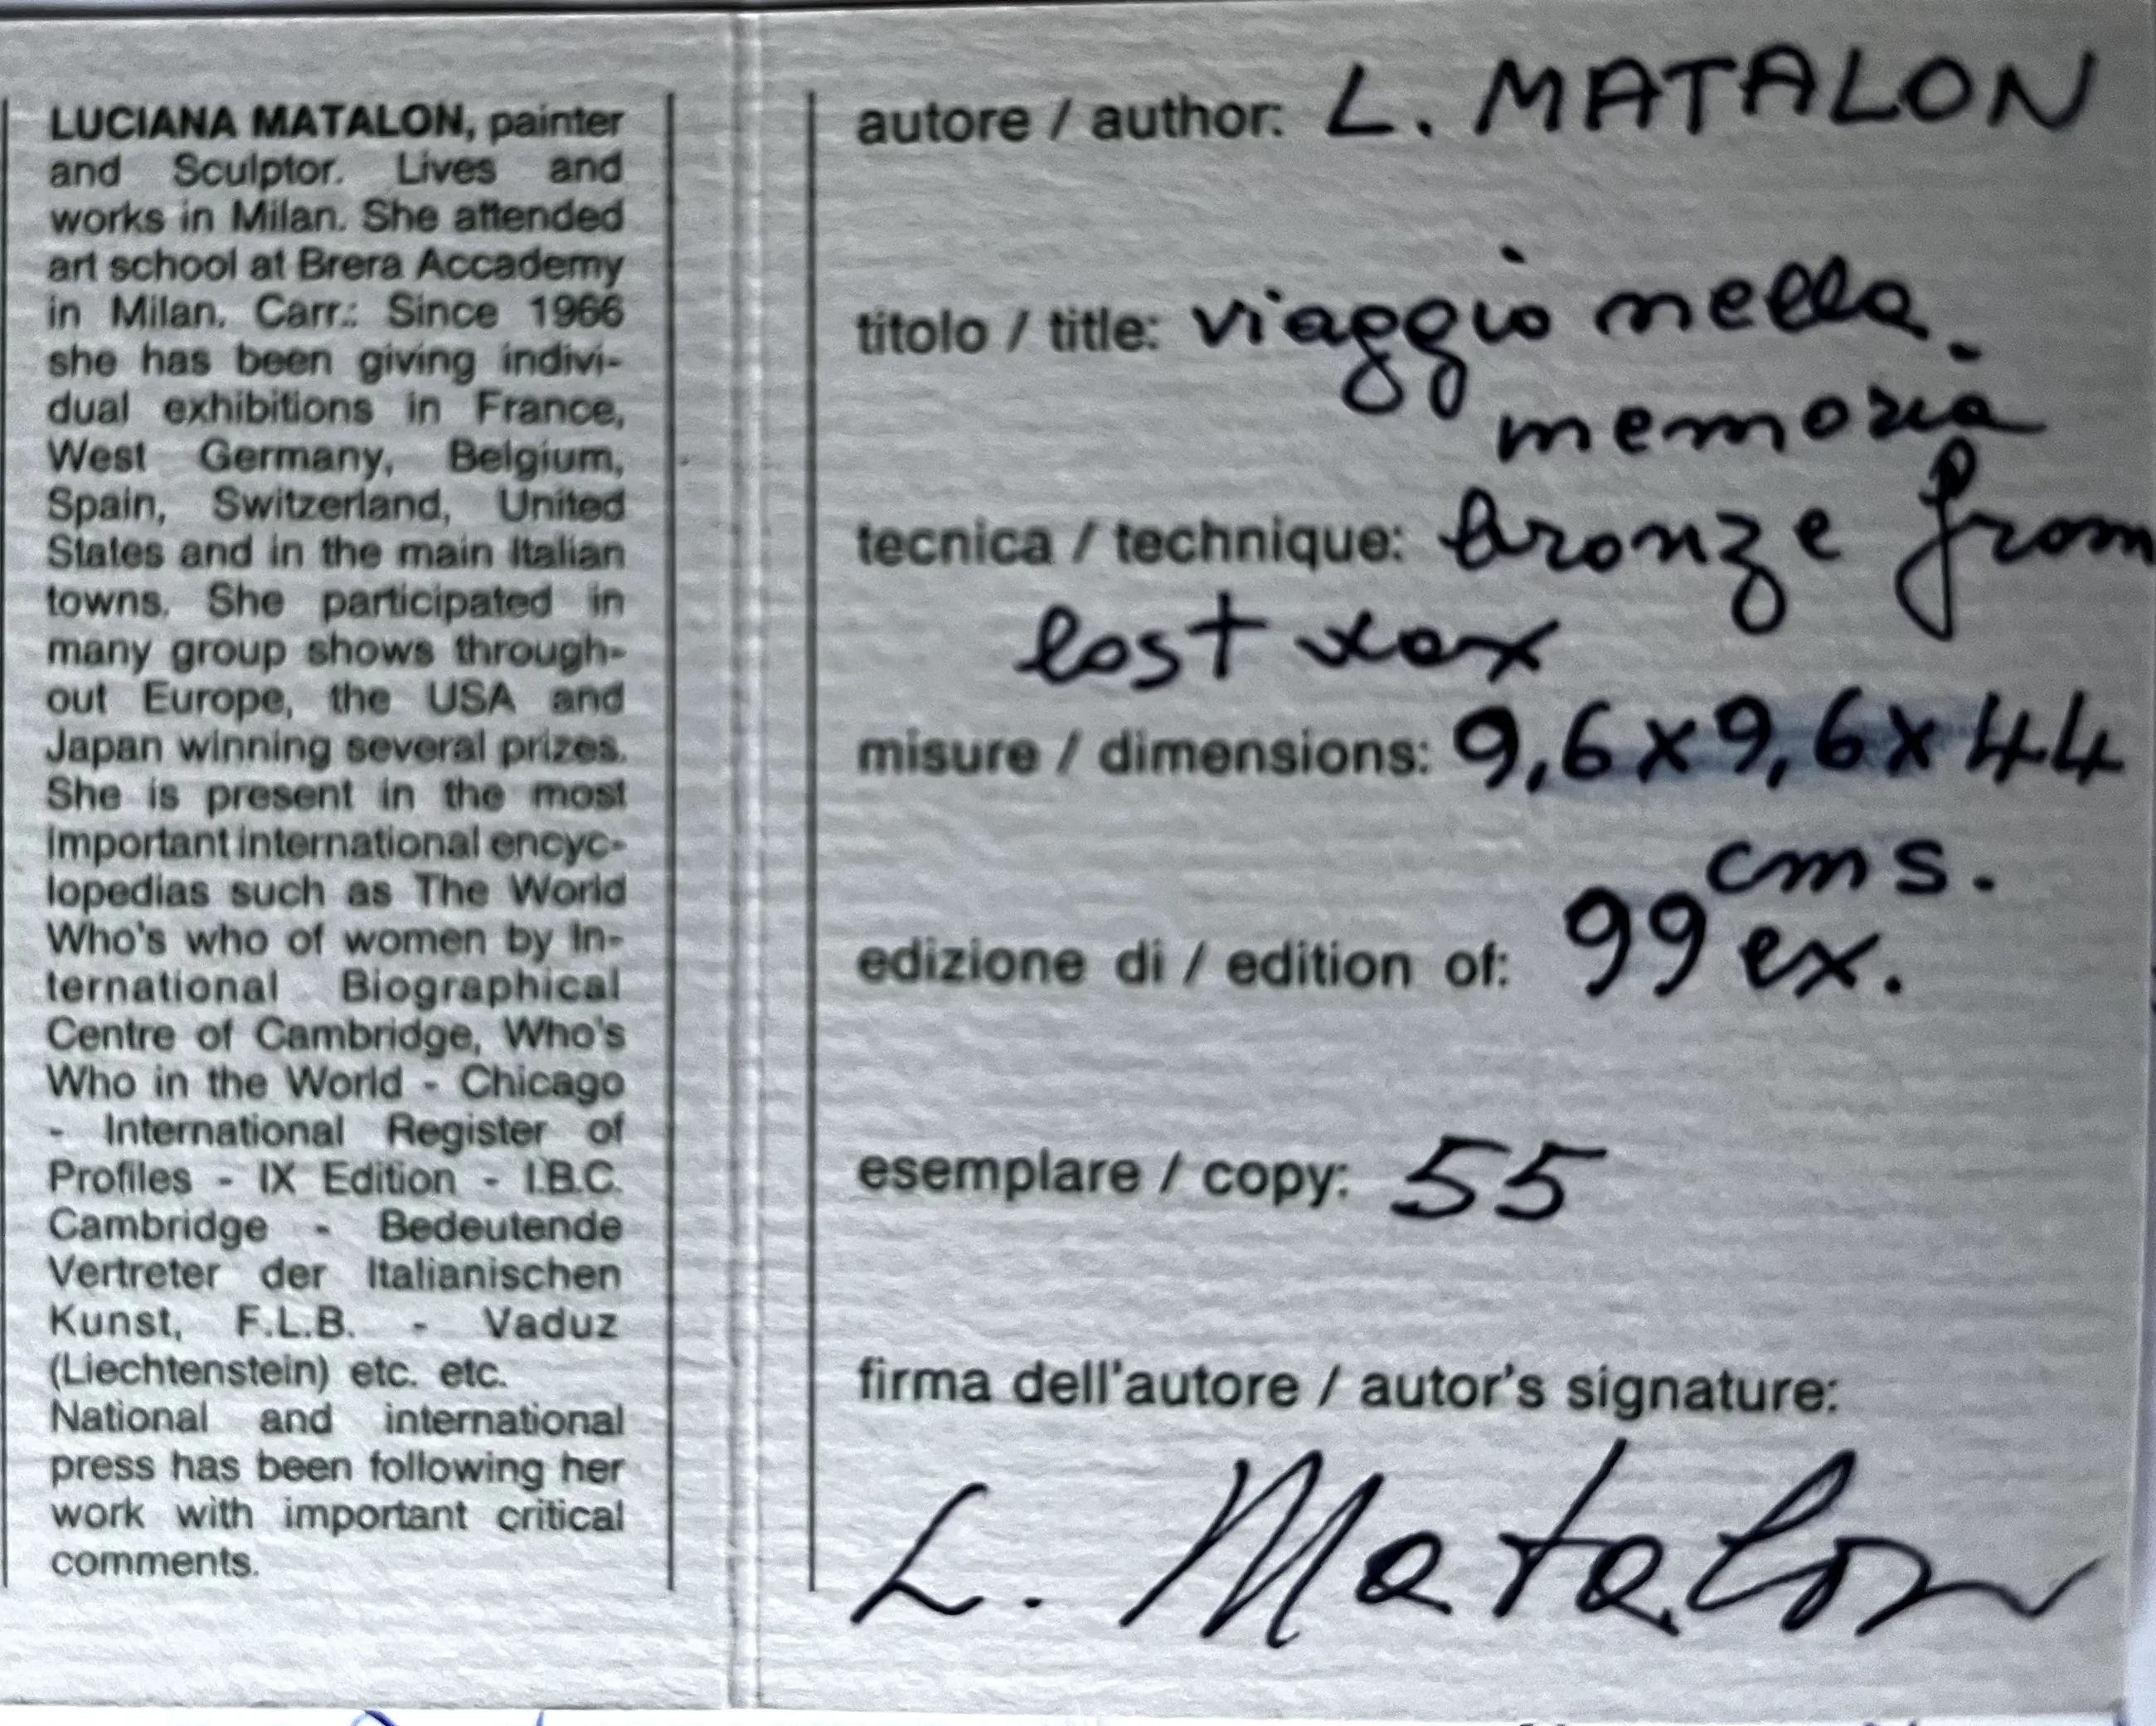 LUCIANA MATALON, painter
and Sculptor. Lives and
works in Milan. She attended
art school at Brera Accademy
in Milan. Carr.: Since 1966
she has been giving indivi-
dual exhibitions in France,
West Germany, Belgium,
Spain, Switzerland, United
States and in the main Italian
towns. She participated in
many group shows through-
out Europe, the USA and
Japan winning several prizes.
She is present in the most
important international encyc-
lopedias such as The World
Who's who of women by In-
ternational Biographical
Centre of Cambridge, Who's
Who in the World - Chicago
- International Register of
Profiles - IX Edition - I.B.C.
Cambridge - Bedeutende
Vertreter der Italianischen
Kunst, F.L.B. - Vaduz
(Liechtenstein) etc. etc.
National and international
press has been following her
work with important critical
comments.
autore / author: L. MATALON
titolo / title: viaggio nella
memoria
tecnica / technique: bronze from
lost xox
misure / dimensions: 9,6 x 9,6 x 44
cms.
edizione di / edition of: 99 ex.
esemplare / copy: 55
firma dell'autore / autor's signature:
L. Matalon